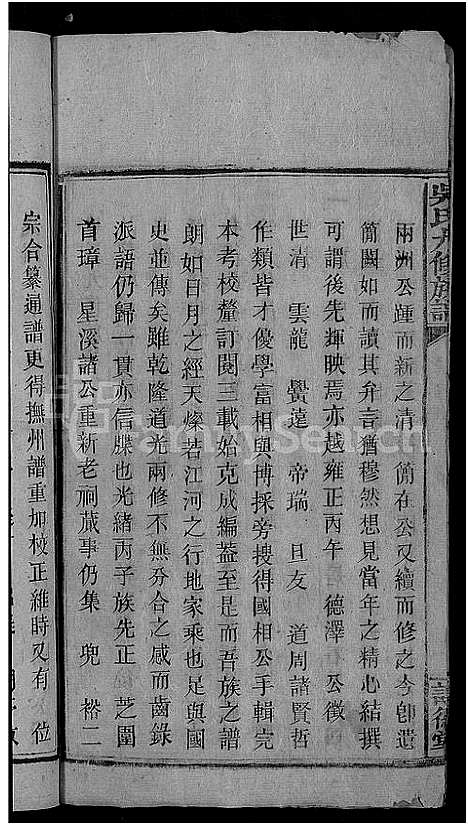 吳氏九修族譜
兩洲公踵而新之清 簡在公又續而修之今卽遺
簡圖如而讀其弁言猶穆然想見當年之精心結撰
可謂後先輝映焉亦越雍正丙午 德澤 公徵
世清 雲龍 贊遠 帝瑞 旦友 道周諸賢哲
作類皆才優學富相與博採旁搜得國相公手輯完
本考校釐訂閱三載始克成編蓋至是而吾族之譜
朗如日月之經天燦若江河之行地家乘也足與國
史並傳矣雖乾隆道光兩修不無分合之感而齒錄
派語仍歸一貫亦信牒也光緒丙子族先正 芝圃
首璋 星溪諸公重新老祠蕆事仍集 兜 裕二
宗合纂通譜更得撫州譜重加校正維時又有 位
FamilySearch